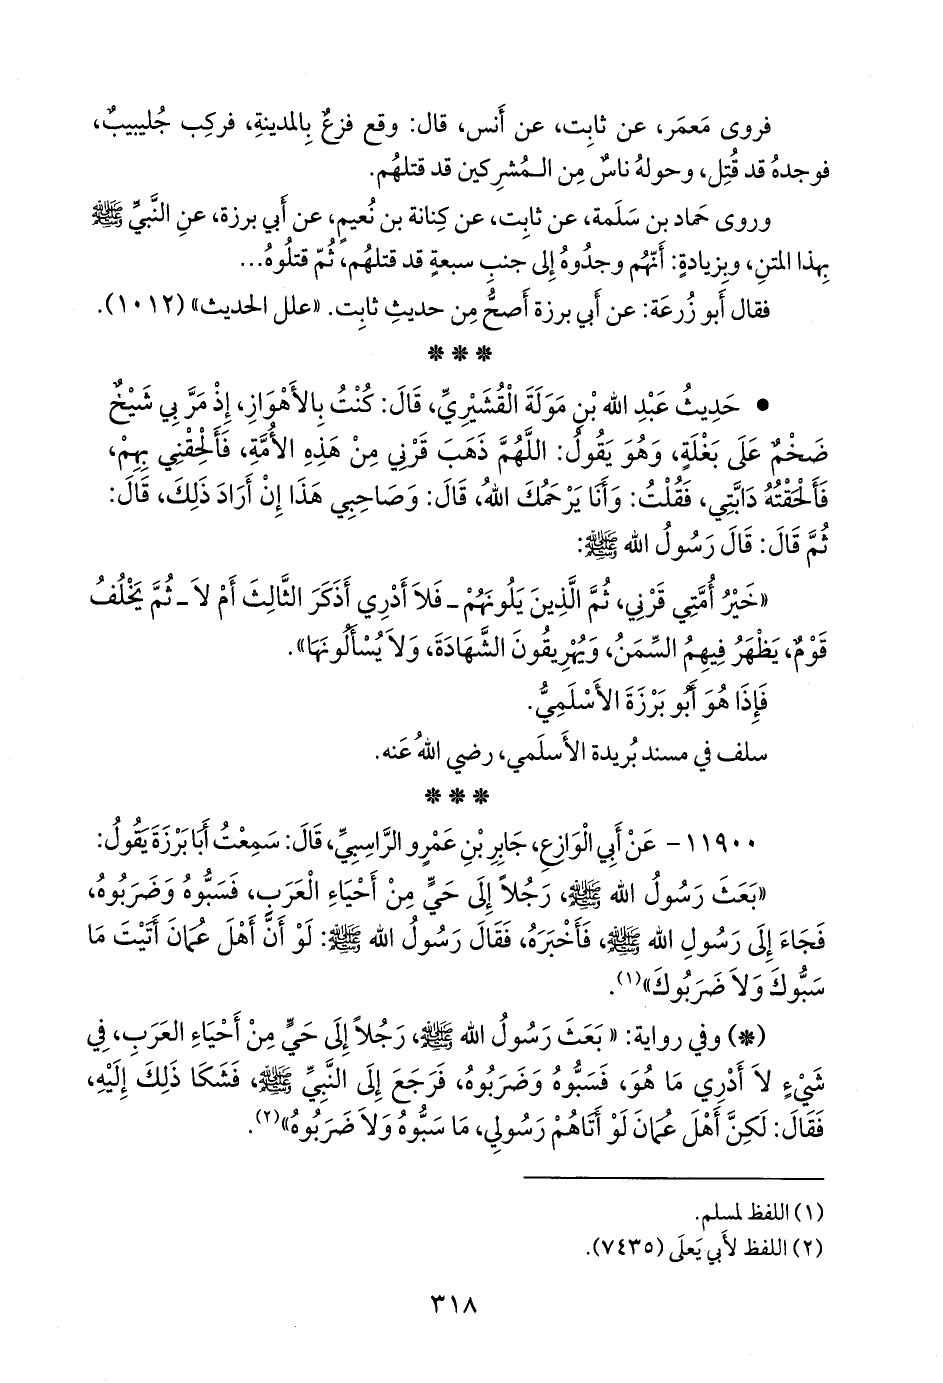 فروى مَعمَر، عن ثابِت، عن أَنس، قال: وقع فزعٌ بِالمدينةِ، فركِب جُليبيبٌ،
فوجدهُ قد قُتِل، وحولهُ ناسٌ مِن الـمُشرِكين قد قتلهُم.
وروى حَماد بن سَلَمة، عن ثابِت، عن كِنانة بن نُعيمٍ، عن أَبي برزة، عنِ النَّبيِّ ﷺ
بِهذا المتنِ، وبِزيادةٍ: أَنّهُم وجدُوهُ إِلى جنبِ سبعةٍ قد قتلهُم، ثُمّ قتلُوهُ...
فقال أَبو زُرعَة: عن أَبي برزة أَصحُّ مِن حديثِ ثابِت. «علل الحديث» (١٠١٢).
* * *
• حَدِيثُ عَبْدِ الله بْنِ مَوَلَةَ الْقُشَيْرِيِّ، قَالَ: كُنْتُ بِالأَهْوَازِ، إِذْ مَرَّ بِي شَيْخٌ
ضَخْمٌ عَلَى بَغْلَةٍ، وَهُوَ يَقُولُ: اللَّهُمَّ ذَهَبَ قَرْنِي مِنْ هَذِهِ الأُمَّةِ، فَأَلْحِقْنِي بِهِمْ،
فَأَلْحَقْتُهُ دَابَّتِي، فَقُلْتُ: وَأَنَا يَرْحَمُكَ اللهُ، قَالَ: وَصَاحِبِي هَذَا إِنْ أَرَادَ ذَلِكَ، قَالَ:
ثُمَّ قَالَ: قَالَ رَسُولُ الله ﷺ:
«خَيْرُ أُمَّتِي قَرْنِي، ثُمَّ الَّذِينَ يَلُونَهُمْ ـ فَلاَ أَدْرِي أَذَكَرَ الثَّالِثَ أَمْ لاَ ـ ثُمَّ يَخْلُفُ
قَوْمٌ، يَظْهَرُ فِيهِمُ السِّمَنُ، وَيُهْرِيقُونَ الشَّهَادَةَ، وَلاَ يُسْأَلُونَهَا».
فَإِذَا هُوَ أَبُو بَرْزَةَ الأَسْلَمِيُّ.
سلف في مسند بُريدة الأَسلَمي، رضي اللهُ عَنه.
* * *
١١٩٠٠- عَنْ أَبِي الْوَازِعِ، جَابِرِ بْنِ عَمْرٍو الرَّاسِبِيِّ، قَالَ: سَمِعْتُ أَبَا بَرْزَةَ يَقُولُ:
«بَعَثَ رَسُولُ الله ﷺ، رَجُلاً إِلَى حَيٍّ مِنْ أَحْيَاءِ الْعَرَبِ، فَسَبُّوهُ وَضَرَبُوهُ،
فَجَاءَ إِلَى رَسُولِ الله ﷺ، فَأَخْبَرَهُ، فَقَالَ رَسُولُ الله ﷺ: لَوْ أَنَّ أَهْلَ عُمَانَ أَتَيْتَ مَا
سَبُّوكَ وَلاَ ضَرَبُوكَ»(١).
(*) وفي رواية: « بَعَثَ رَسُولُ الله ﷺ، رَجُلاً إِلَى حَيٍّ مِنْ أَحْيَاءِ العَرَبِ، فِي
شَيْءٍ لاَ أَدْرِي مَا هُوَ، فَسَبُّوهُ وَضَرَبُوهُ، فَرَجَعَ إِلَى النَّبِيِّ ﷺ، فَشَكَا ذَلِكَ إِلَيْهِ،
فَقَالَ: لَكِنَّ أَهْلَ عُمَانَ لَوْ أَتَاهُمْ رَسُولِي، مَا سَبُّوهُ وَلاَ ضَرَبُوهُ»(٢).
(١) اللفظ لمسلم.
(٢) اللفظ لأَبي يَعلَى (٧٤٣٥).
٣١٨